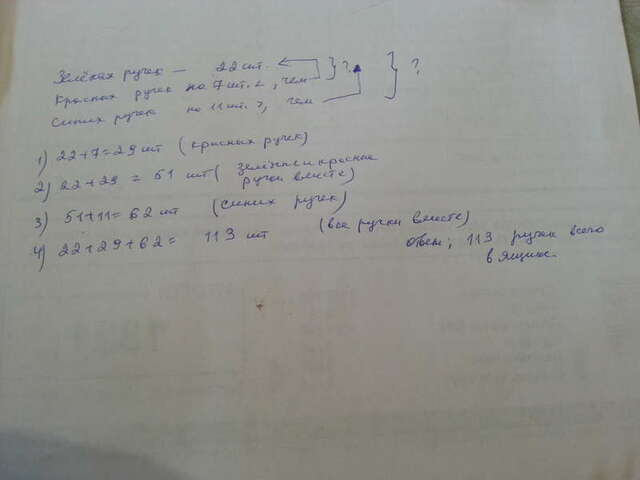 Зелёных ручек — 22 шт. } ? } ?
Красных ручек на 7 шт. <, чем
Синих ручек на 11 шт. >, чем
1) 22+7=29 шт (красных ручек)
2) 22+29 = 51 шт (зелёные и красные
ручки вместе)
3) 51+11= 62 шт (синих ручек)
4) 22+29+62= 113 шт (все ручки вместе)
Ответ: 113 ручек всего
в ящике.